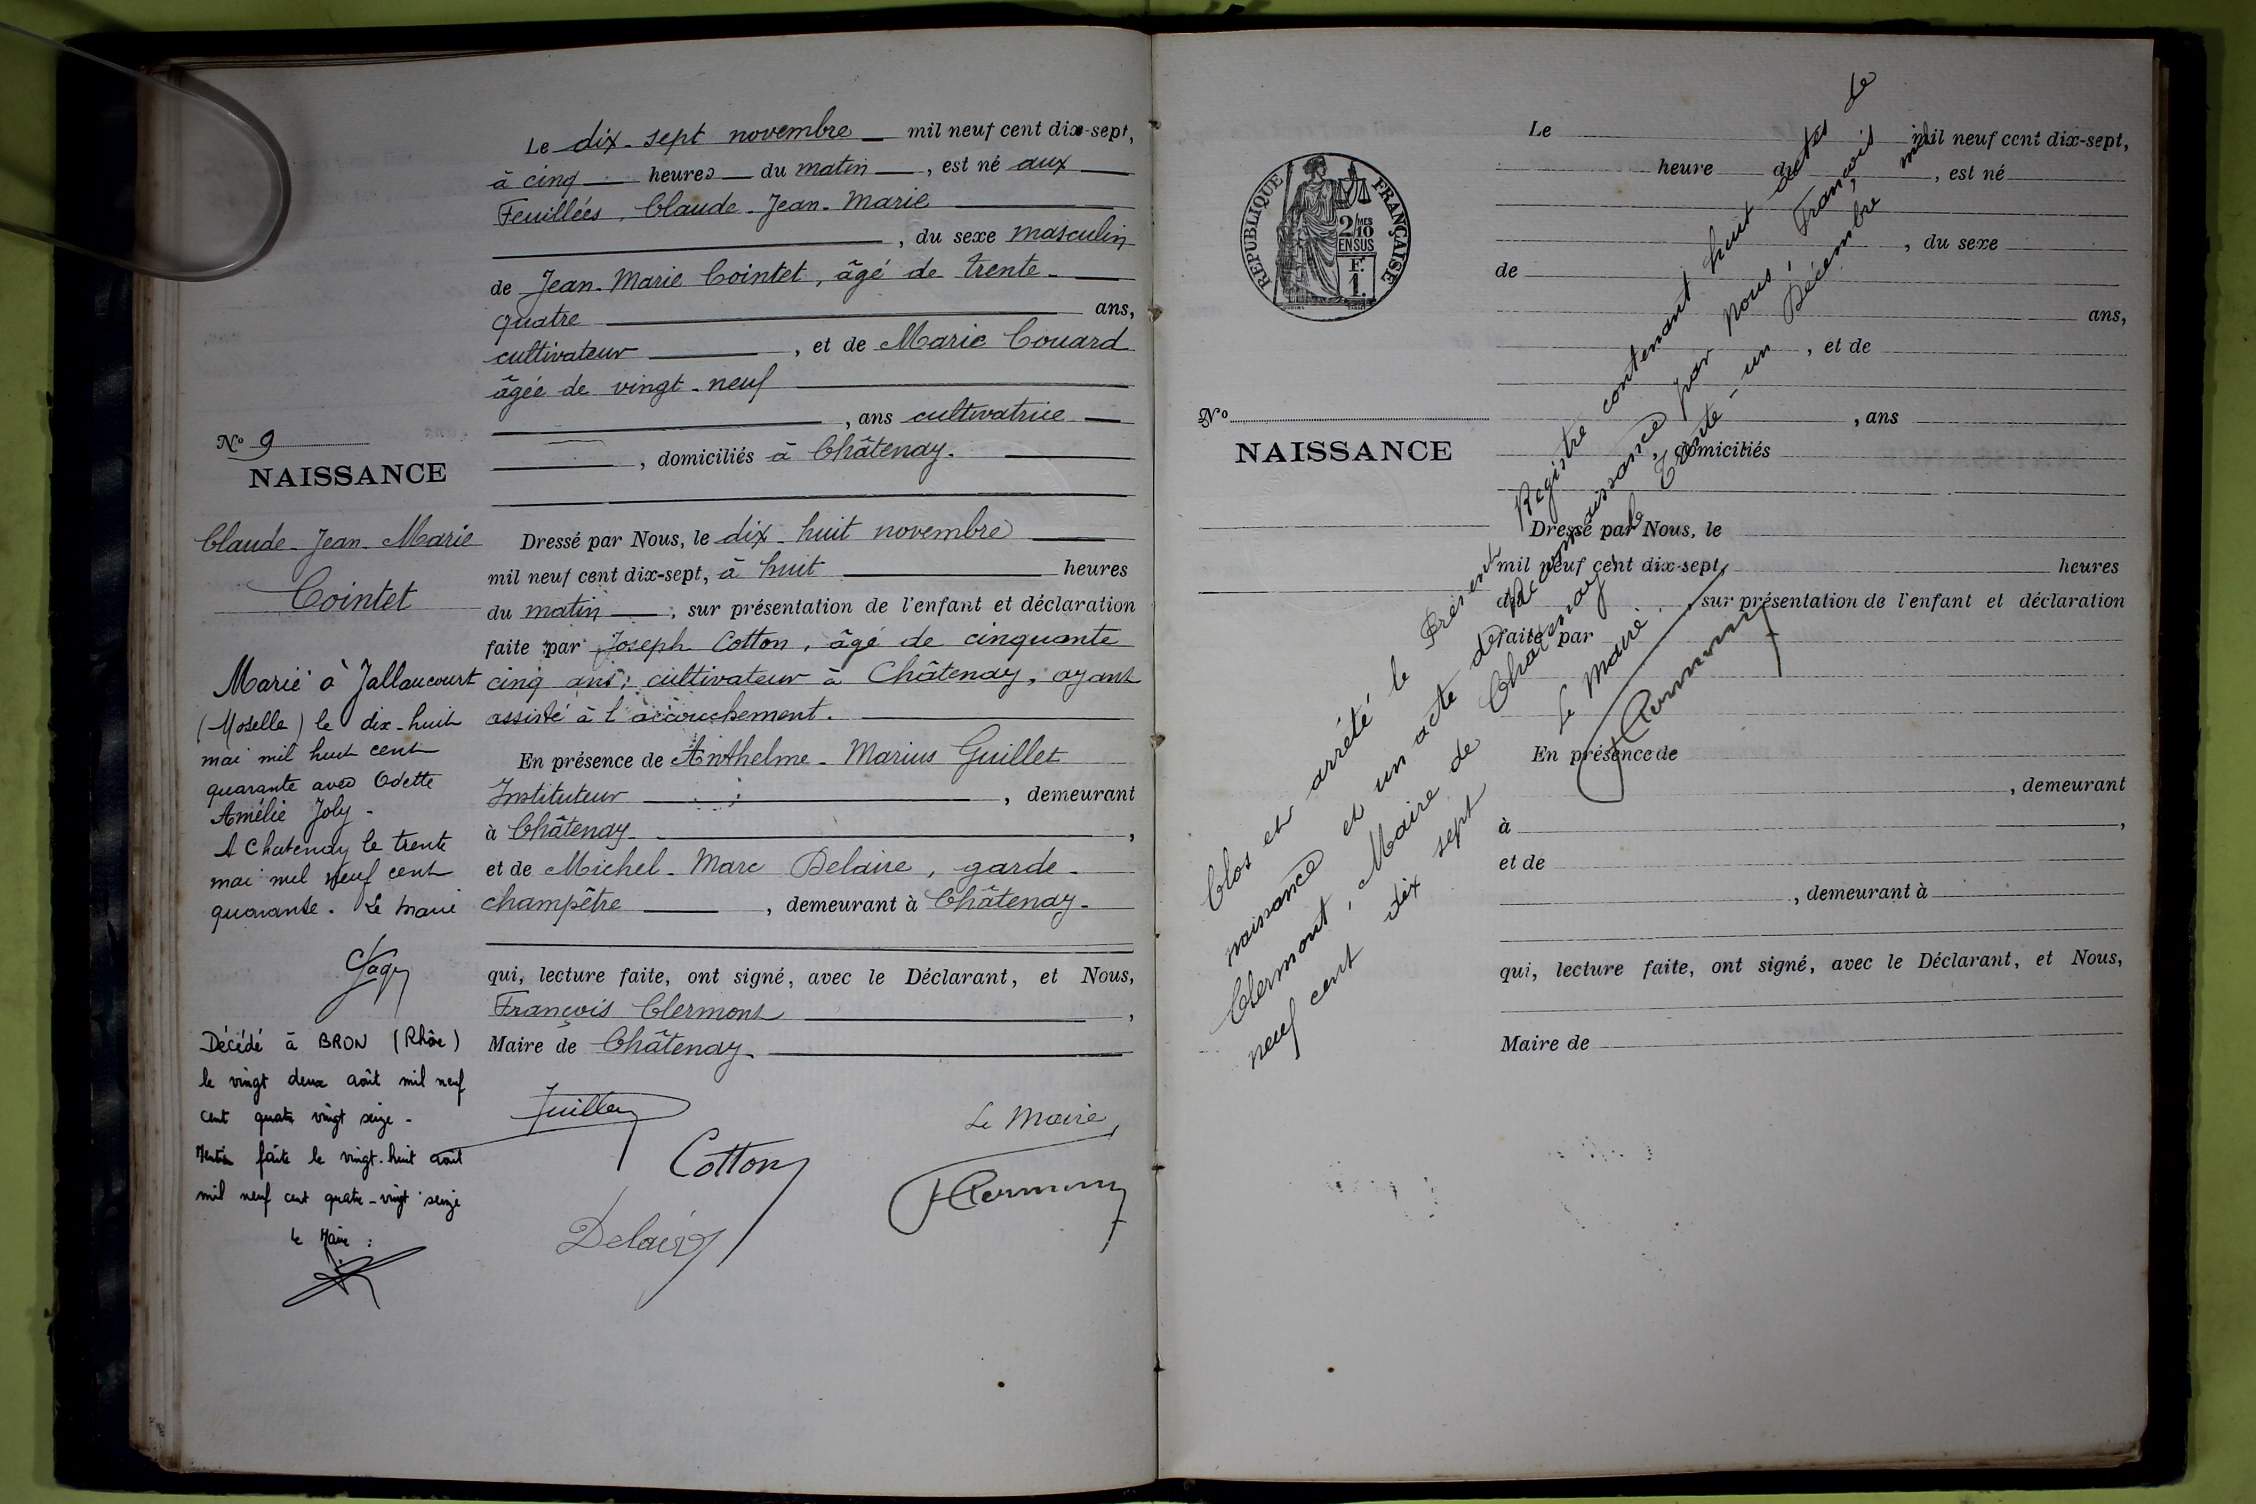 Le dix-sept novembre mil neuf cent dix-sept,
à cinq heures du matin, est né aux
Feuillées, Claude-Jean-Marie
, du sexe masculin
de Jean-Marie Cointet, âgé de trente-
quatre ans,
cultivateur, et de Marie Couard
âgée de vingt-neuf
, ans cultivatrice
, domiciliés à Châtenay.
Nº 9
NAISSANCE
Claude-Jean-Marie
Cointet
Dressé par Nous, le dix-huit novembre
mil neuf cent dix-sept, à huit heures
du matin, sur présentation de l'enfant et déclaration
faite par Joseph Cotton, âgé de cinquante
cinq ans, cultivateur à Châtenay, ayant
assisté à l'accouchement.
En présence de Anthelme-Marius Guillet
Instituteur, demeurant
à Châtenay,
et de Michel-Marc Delaire, garde-
champêtre, demeurant à Châtenay-
qui, lecture faite, ont signé, avec le Déclarant, et Nous,
François Clermont,
Maire de Châtenay.
Marié à Jallaucourt
(Moselle) le dix-huit
mai mil huit cent
quarante avec Odette
Amélie Joly-
A Chatenay le trente
mai mil neuf cent
quarante. Le maire
Décédé à BRON (Rhône)
le vingt deux août mil neuf
cent quatre vingt seize-
Mention faite le vingt-huit août
mil neuf cent quatre-vingt seize
le Maire :
Cotton
Delaire
Le Maire,
RÉPUBLIQUE FRANÇAISE
2/10 MES
EN SUS
F.
1.
Nº
NAISSANCE
Le mil neuf cent dix-sept,
heure du, est né
, du sexe
de
ans,
, et de
, ans
, domiciliés
Dressé par Nous, le
mil neuf cent dix-sept, heures
du, sur présentation de l'enfant et déclaration
faite par
En présence de
, demeurant
à,
et de
, demeurant à
qui, lecture faite, ont signé, avec le Déclarant, et Nous,
Maire de
Clos et arrêté le Présent Registre contenant huit actes de
naissance et un acte de Reconnaissance par nous, François
Clermont, Maire de Chatenay le Trente-un Décembre mil
neuf cent dix sept
Le Maire.